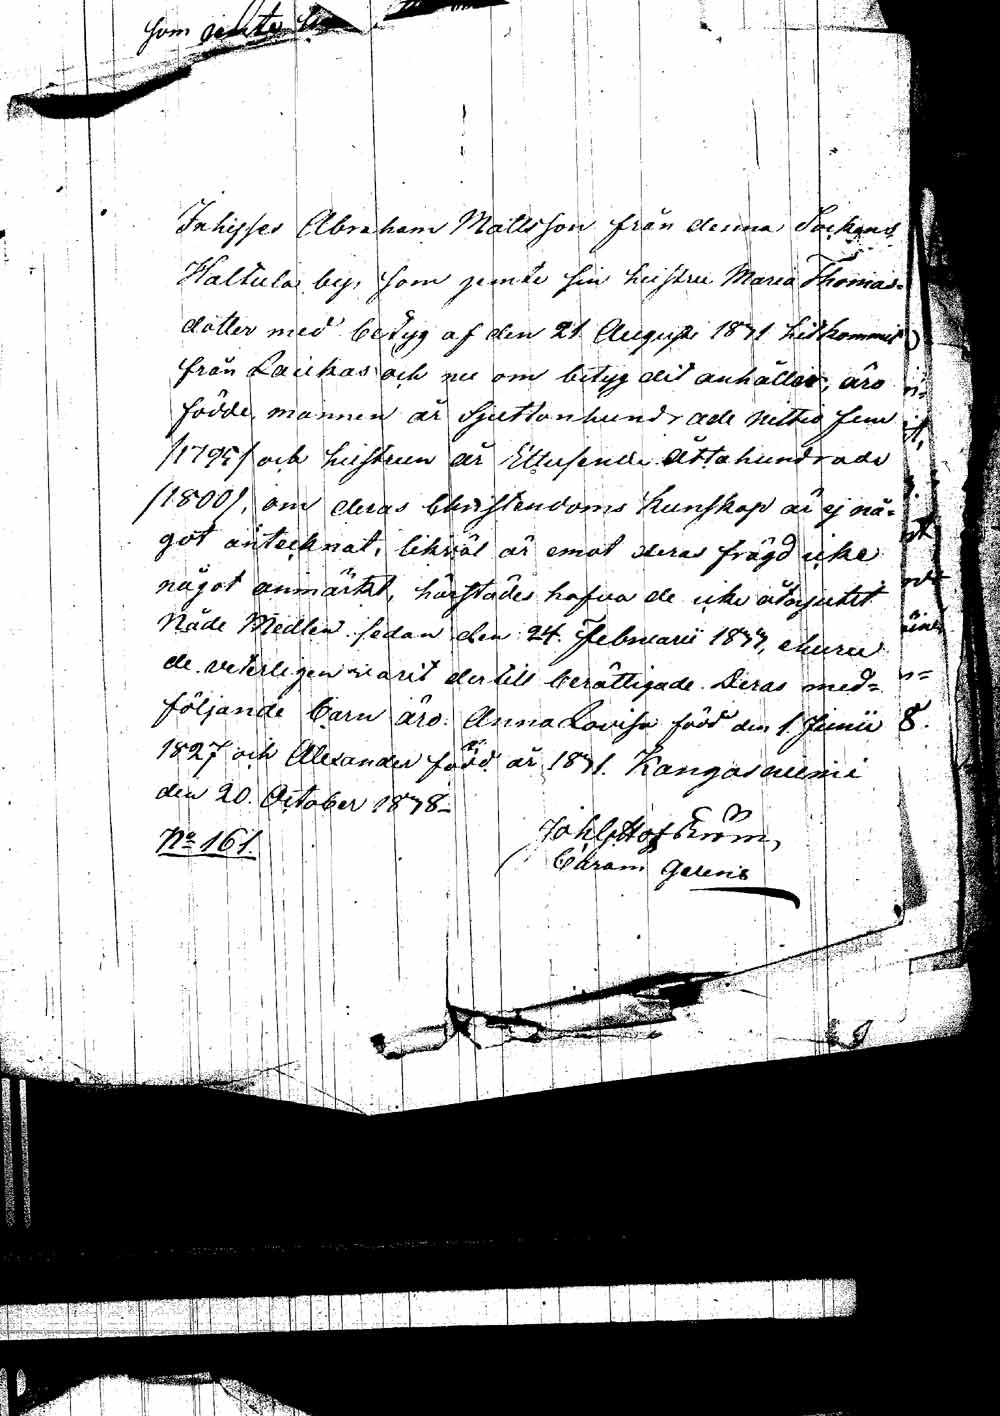 som jemte
Inhyses Abraham Mattsson från denna Sockens
Haltula by, som jemte sin hustru Maria Thomas-
dotter med betyg af den 21 Augusti 1871 hitkommit
från Laukas och nu om betyg dit anhåller, äro
födde, mannen år Sjuttonhundrade nittio fem
/1795/ och hustrun år Ettusende åttahundrade
/1800/, om deras Christendoms Kunskap är ej nå-
got antecknat, likväl är emot deras frägd icke
något anmärkt, härstädes hafva de icke åtnjutit
Nåde Medlen sedan den 24 Februarii 1877, ehuru
de veterligen varit dertill berättigade. Deras med-
följande barn äro: Anna Lovisa född den 1 Junii
1827 och Alexander född år 1871. Kangasniemi
den 20. October 1878.
No 161.
Joh G Hofström,